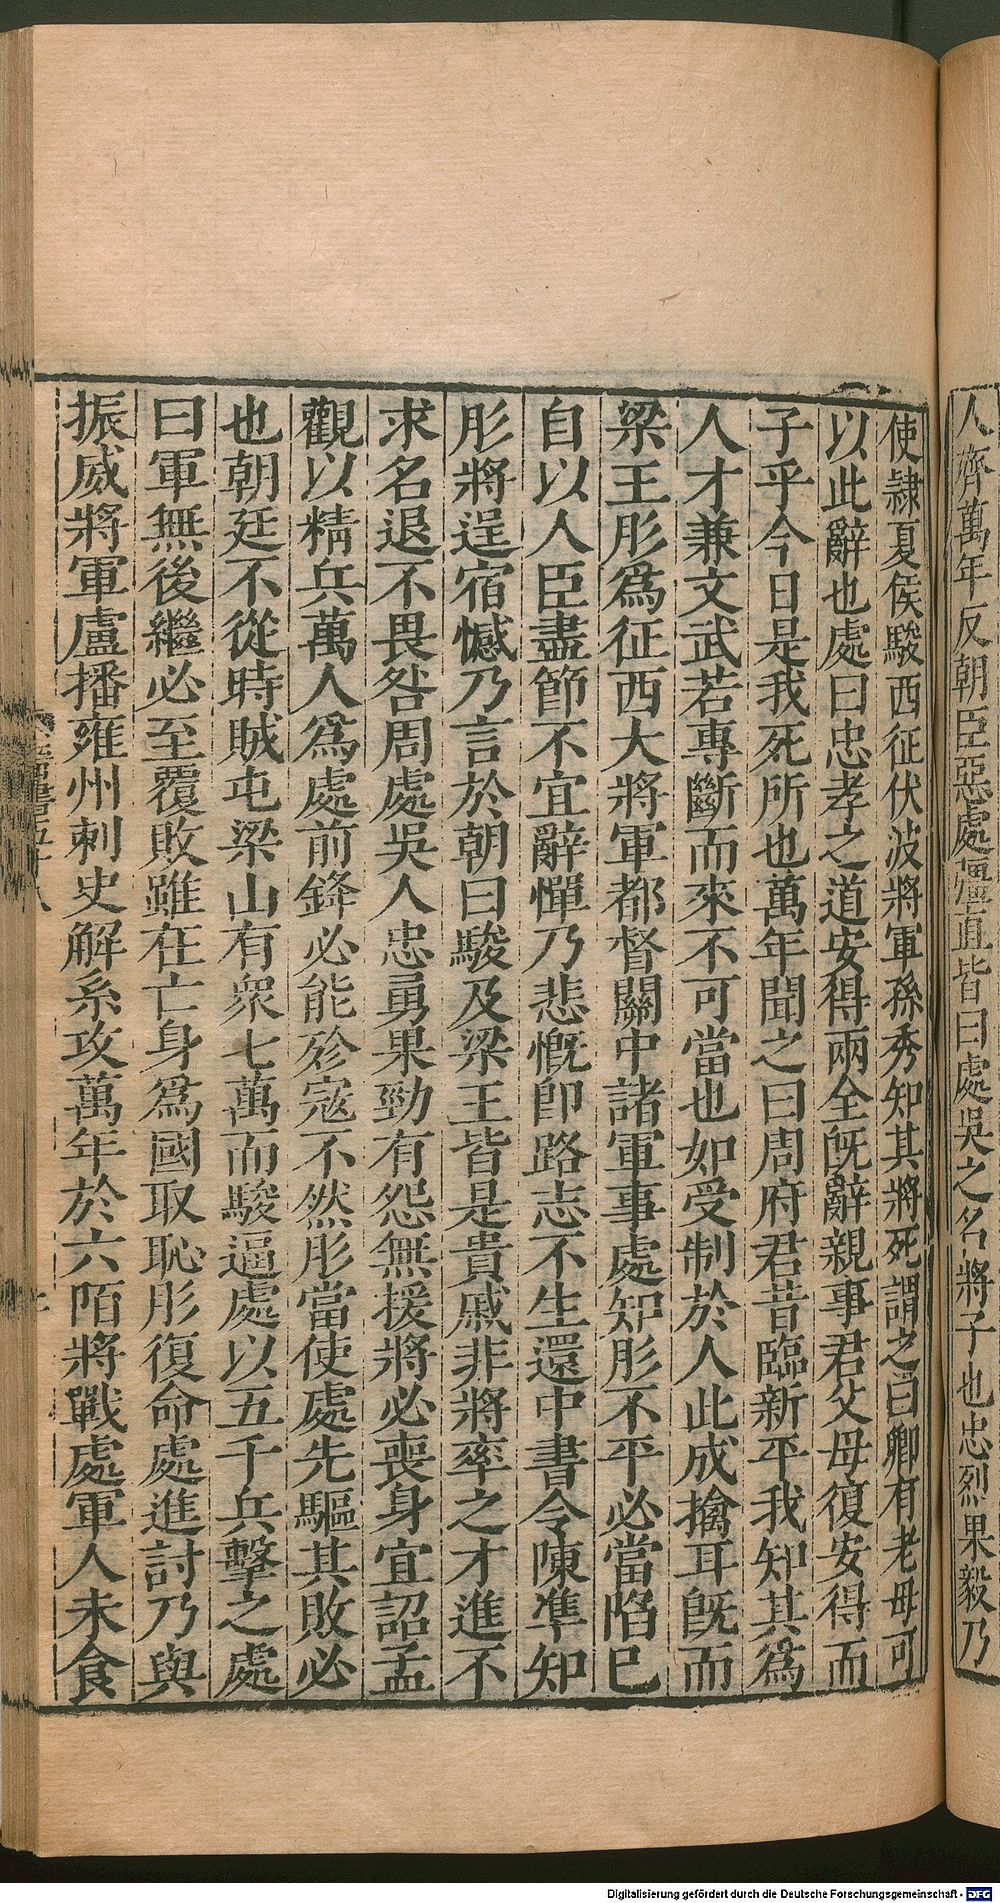 人齊萬年反朝臣惡處彊直皆曰處吳之名將子也忠烈果毅乃
使隷夏侯駿西征伏波將軍孫秀知其將死謂之曰卿有老母可
以此辭也處曰忠孝之道安得兩全旣辭親事君父母復安得而
子乎今日是我死所也萬年聞之曰周府君昔臨新平我知其爲
人才兼文武若專斷而來不可當也如受制於人此成擒耳旣而
梁王肜爲征西大將軍都督關中諸軍事處知肜不平必當陷已
自以人臣盡節不宜辭憚乃悲慨卽路志不生還中書令陳準知
肜將逞宿憾乃言於朝曰駿及梁王皆是貴戚非將率之才進不
求名退不畏咎周處吳人忠勇果勁有怨無援將必喪身宜詔孟
觀以精兵萬人爲處前鋒必能殄寇不然肜當使處先驅其敗必
也朝廷不從時賊屯梁山有衆七萬而駿逼處以五千兵擊之處
曰軍無後繼必至覆敗雖在亡身爲國取恥肜復命處進討乃與
振威將軍盧播雍州刺史解系攻萬年於六陌將戰處軍人未食
Digitalisierung gefördert durch die Deutsche Forschungsgemeinschaft - DFG